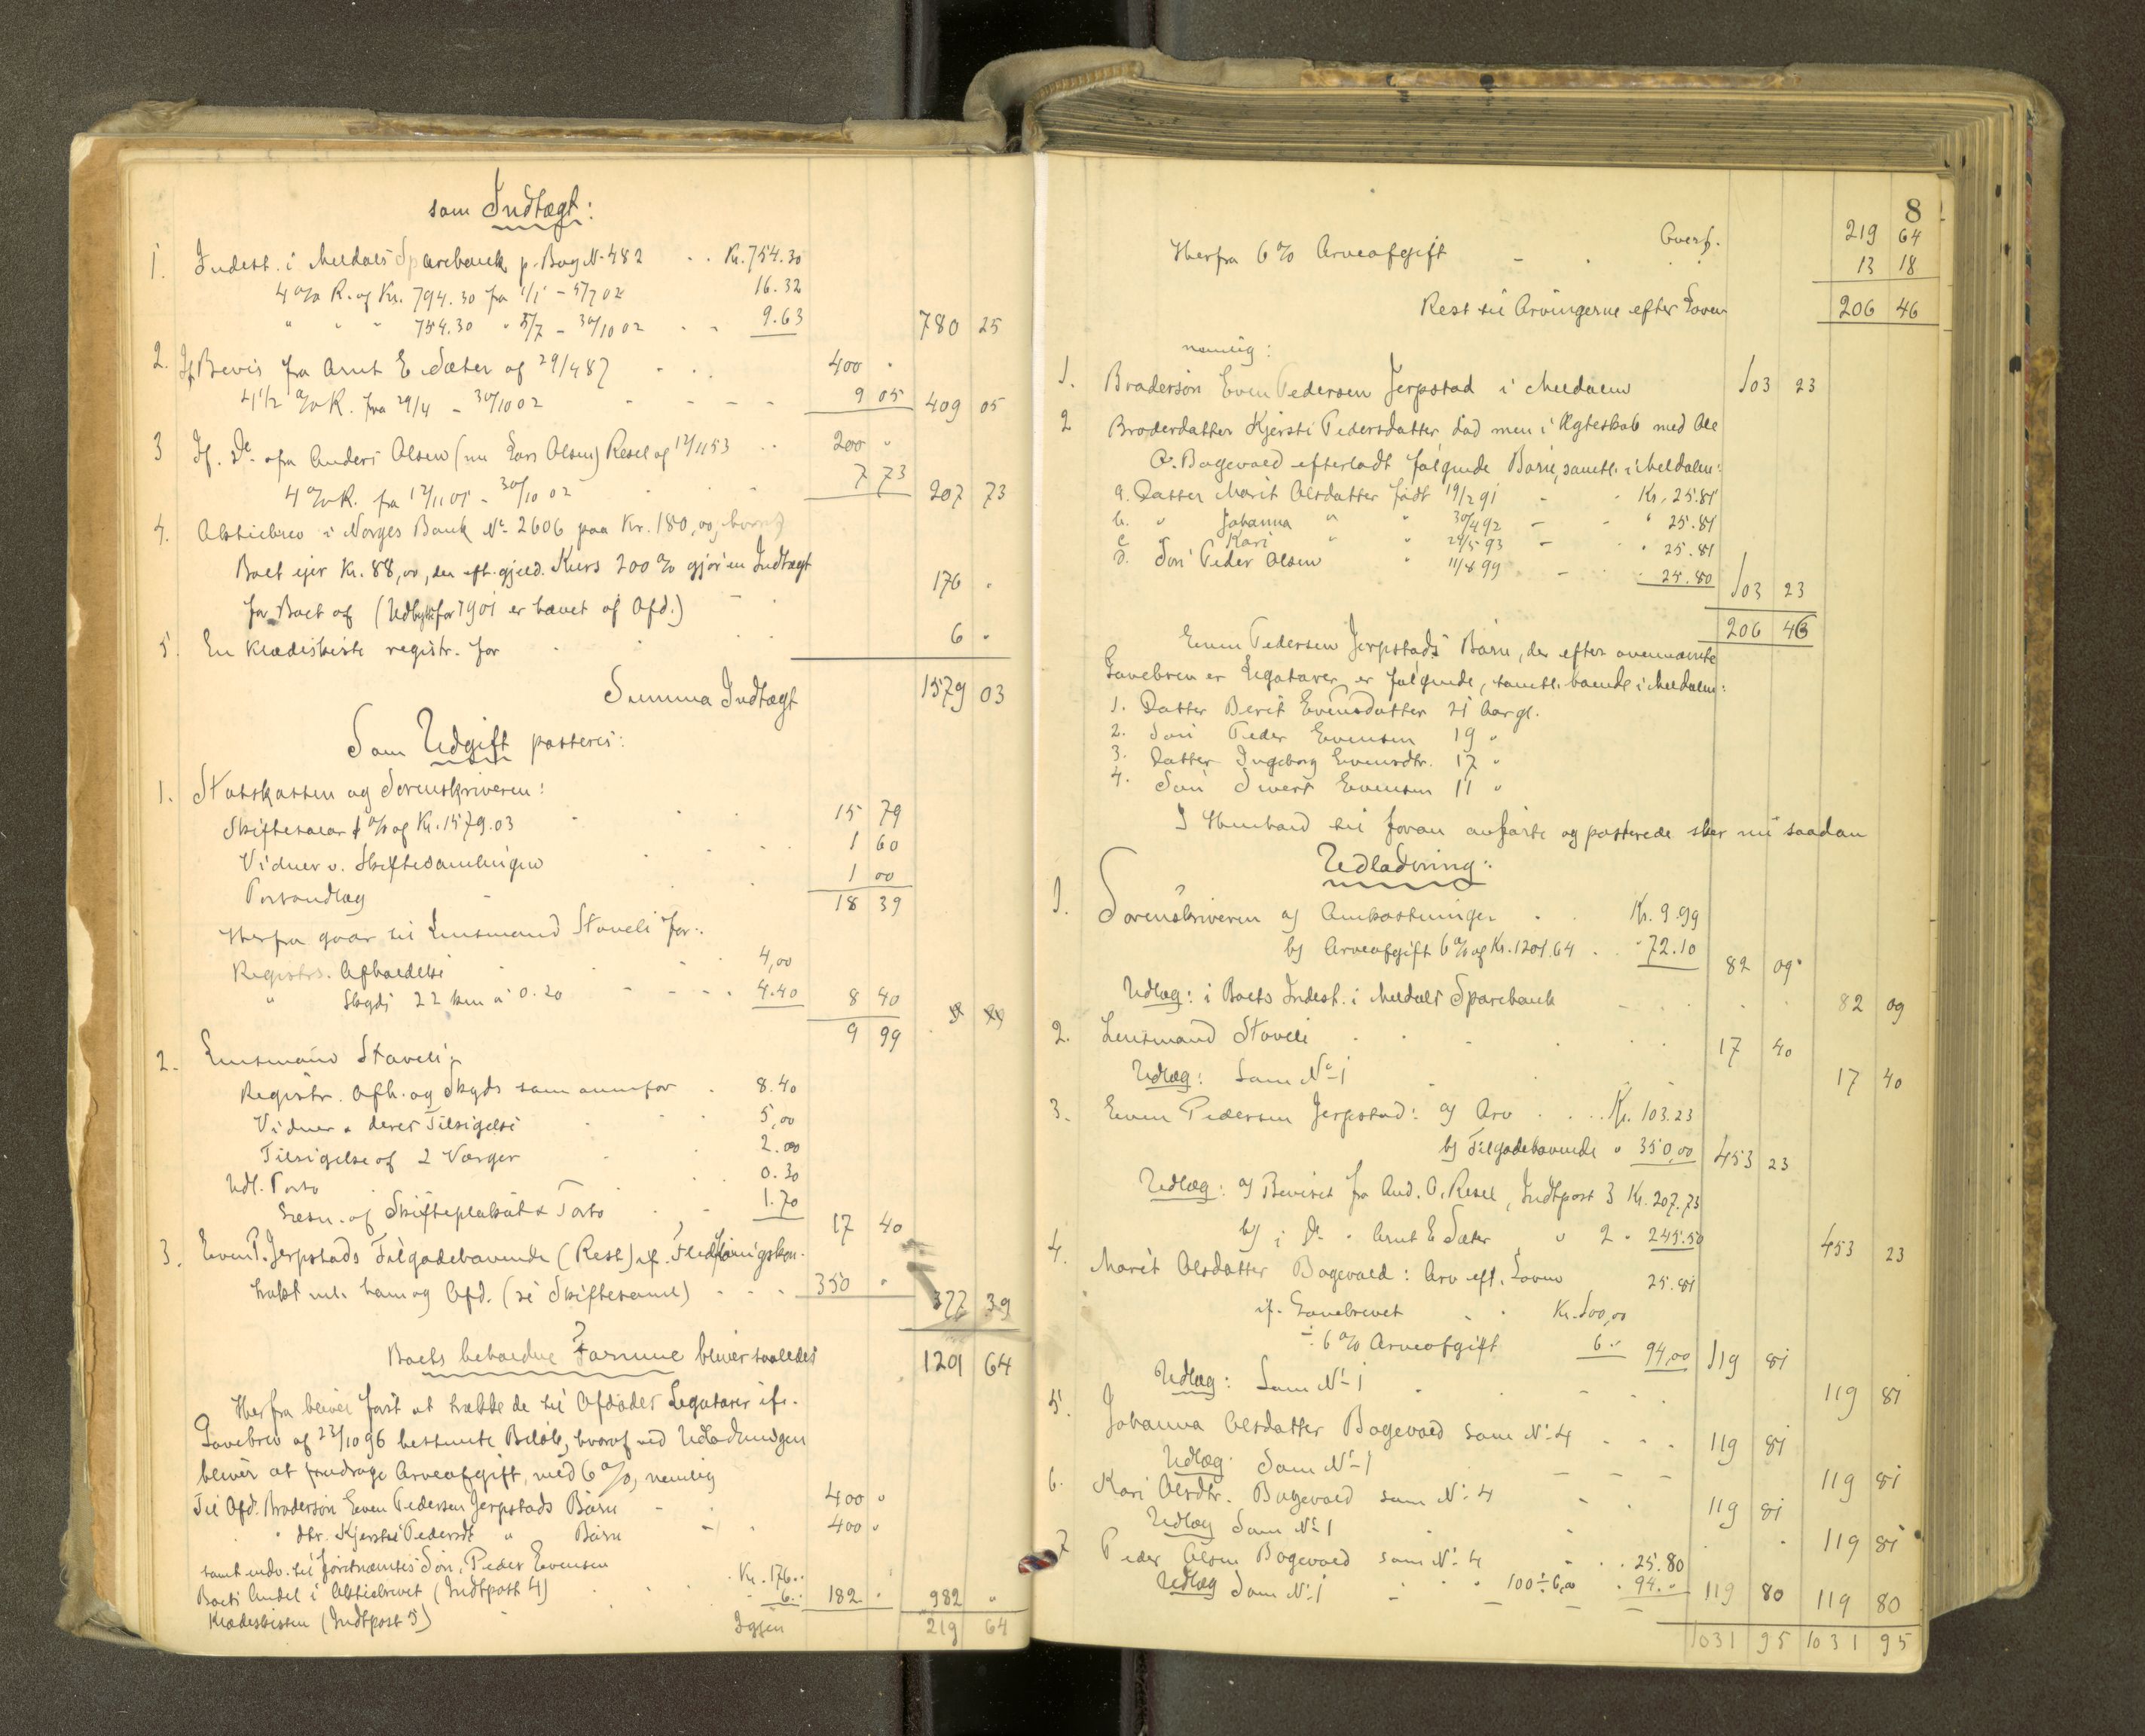 som Indtægt:
1. Indest. i Meldals Sparebank p. Bog No 482 . . Kr. 754.30
4 % R. af Kr. 794.30 fra 1/1 - 5/7 02 16.32
" " " 754.30 " 5/7 - 30/10 02 . . 9.63 780 25
2. If. Bevis fra Arnt E. Sæter af 29/4 87 . . . 400 "
4 1/2 % R. fra 29/4 - 30/10 02 - - - - 9 05 409 05
3 If. Do. fra Anders Olsen (nu Lars Olsen) Resel af 12/11 53 . . 200 "
4 % R. fra 12/11 01 - 30/10 02 . . - 7 73 207 73
4. Aktiebrev i Norges Bank No 2606 paa Kr. 180,00, hvoraf
Boet ejer Kr. 88,00, der eft. gjeld. Kurs 200 % gjør en Indtægt
for Boet af (Udbytte for 1901 er hævet af Afd.) - . 176 "
5. En Klædeskiste registr. for . . . . 6 "
Summa Indtægt 1579 03
Som Udgift posteres:
1. Statskassen og Sorenskriveren:
Skiftesalær 1 % af Kr. 1579.03 . . 15 79
Vidner v. Skiftesamlingen . . . . 1 60
Portoudlæg - . . 1 00
18 39
Herfra gaar til Lensmand Staveli for:
Registrs. Afholdelse . . - - . 4,00
" Skyds 22 km a 0.20 - - - - 4.40 8 40
9 99
2. Lensmand Staveli:
Registr. Afh. og Skyds som ovenfor . 8.40
Vidner & deres Tilsigelse . . . 5,00
Tilsigelse af 2 Værger . . 2.00
Udl. Porto . . 0.30
Læsn. af Skifteplakat & Porto . - 1.70 17 40
3. Even P. Jerpstads Tilgodehavende (Rest) if. Flødføringskon-
trakt ml. ham og Afd. (se Skiftesaml) . . . 350 " 377 39
Boets beholdne Formue bliver saaledes 1201 64
Herfra bliver først at trække de til Afdødes Legatarer ifr.
Gavebrev af 23/10 96 bestemte Beløb, hvoraf ved Udlodningen
bliver at fradrage Arveafgift, med 6 %, nemlig
Til Afd. Brodersøn Even Pedersen Jerpstads Børn - . 400 "
" dtr. Kjersti Pedersdt " Børn - . 400 "
samt indv. til førstnævntes Søn, Peder Evensen
Boets Andel i Aktiebrevet (Indtpost 4) . Kr. 176..
Klædeskisten (Indtpost 5) " 6.. 182 " 982 "
Igjen 219 64
8
Overf. 219 64
Herfra 6 % Arveafgift - . . . 13 18
Rest til Arvingerne efter Loven 206 46
nemlig:
1. Brodersøn Even Pedersen Jerpstad i Meldalen 103 23
2 Broderdatter Kjersti Pedersdatter, død men i Ægteskab med Ole
O. Bagevold efterladt følgende Børn, samtl. i Meldalen:
a. Datter Marit Olsdatter født 19/2 91 - . Kr. 25.81
b. " Johanna " " 30/4 92 - - " 25.81
c " Kari " " 24/5 93 - . " 25.81
d. Søn Peder Olsen " 11/8 99 . - . . 25.80 103 23
206 46
Even Pedersen Jerpstads Børn, der efter ovennævnte
Gavebrev er Legatarer, er følgende, samtl. boende i Meldalen:
1. Datter Berit Evensdatter 21 Aar gl.
2. Søn Peder Evensen 19 "
3. Datter Ingeborg Evensdtr. 17 "
4. Søn Sivert Evensen 11 "
I Henhold til foran anførte og posterede sker nu saadan
Udlodning:
1. Sorenskriveren a) Omkostninger . . Kr. 9.99
b) Arveafgift 6 % af Kr. 1201.64 . . " 72.10 82 09
Udlæg: i Boets Indest. i Meldals Sparebank - - . . 82 09
2. Lensmand Staveli . . . . . . 17 40
Udlæg: Som No 1 . - - 17 40
3. Even Pedersen Jerpstad: a) Arv . . . Kr. 103.23
b) Tilgodehavende " 350,00 453 23
Udlæg: a) Beviset fra And. O. Resel, Indtpost 3 Kr. 207.73
b) i Do. " Arnt E. Sæter, " 2 " 245.50 453 23
4. Marit Olsdatter Bagevold: Arv eft. Loven 25.81
if. Gavebrevet . . Kr. 100,00
÷ 6 % Arveafgift 6.- 94,00 119 81
Udlæg: Som No 1 . - . 119 81
5. Johanna Olsdatter Bagevold som No 4 . . . 119 81
Udlæg: Som No 1 - - - 119 81
6. Kari Olsdtr. Bagevold som No 4 - . 119 81
Udlæg Som No 1 . . . . 119 81
7 Peder Olsen Bagevold som No 4 . . . 25.80
Udlæg Som No 1 - . . 100 ÷ 6,00 . 94.. 119 80 119 80
1031 95 1031 95